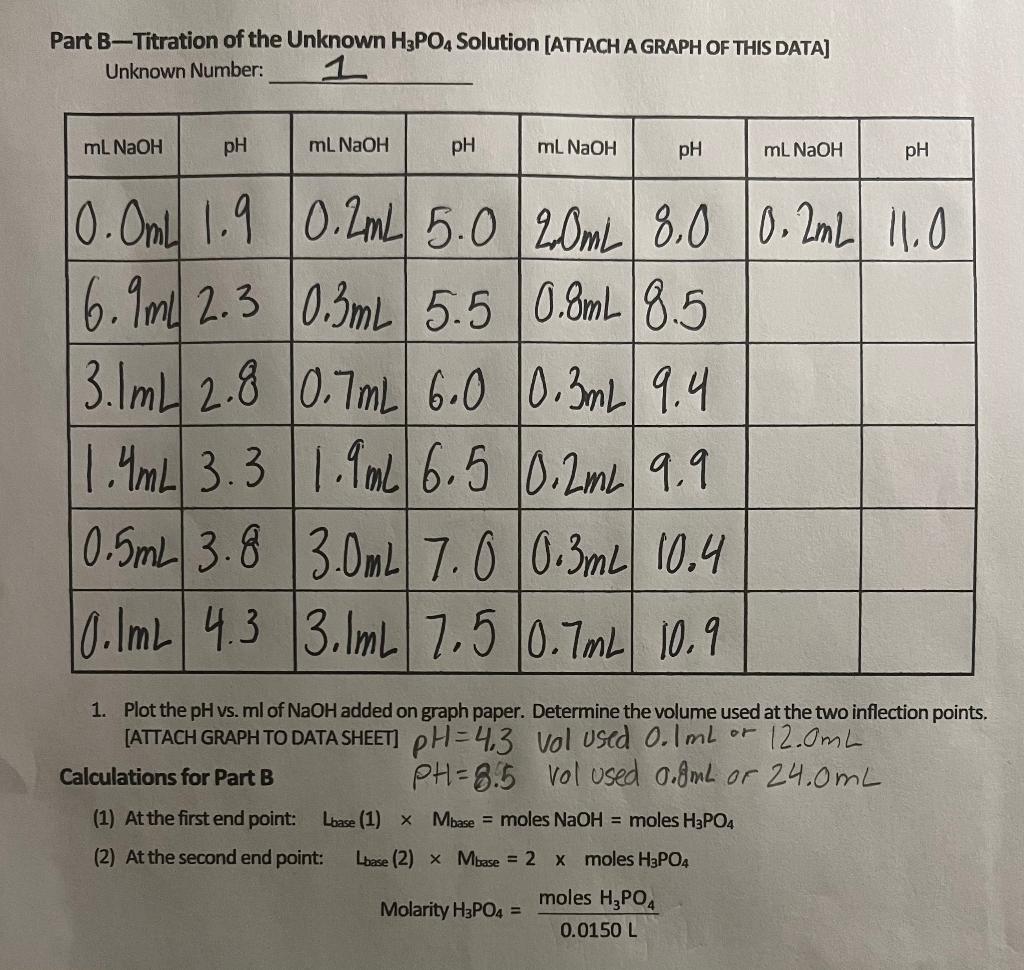 Part B—Titration of the Unknown H₃PO₄ Solution [ATTACH A GRAPH OF THIS DATA]
Unknown Number: 1
mL NaOH pH mL NaOH pH mL NaOH pH mL NaOH pH
0.0mL 1.9 0.2mL 5.0 2.0mL 8.0 0.2mL 11.0
6.9mL 2.3 0.3mL 5.5 0.8mL 8.5
3.1mL 2.8 0.7mL 6.0 0.3mL 9.4
1.4mL 3.3 1.9mL 6.5 0.2mL 9.9
0.5mL 3.8 3.0mL 7.0 0.3mL 10.4
0.1mL 4.3 3.1mL 7.5 0.7mL 10.9
1. Plot the pH vs. ml of NaOH added on graph paper. Determine the volume used at the two inflection points.
[ATTACH GRAPH TO DATA SHEET] pH=4.3 vol used 0.1mL or 12.0mL
Calculations for Part B pH=8.5 vol used 0.8mL or 24.0mL
(1) At the first end point: Lbase (1) × Mbase = moles NaOH = moles H₃PO₄
(2) At the second end point: Lbase (2) × Mbase = 2 x moles H₃PO₄
Molarity H₃PO₄ = moles H₃PO₄
0.0150 L